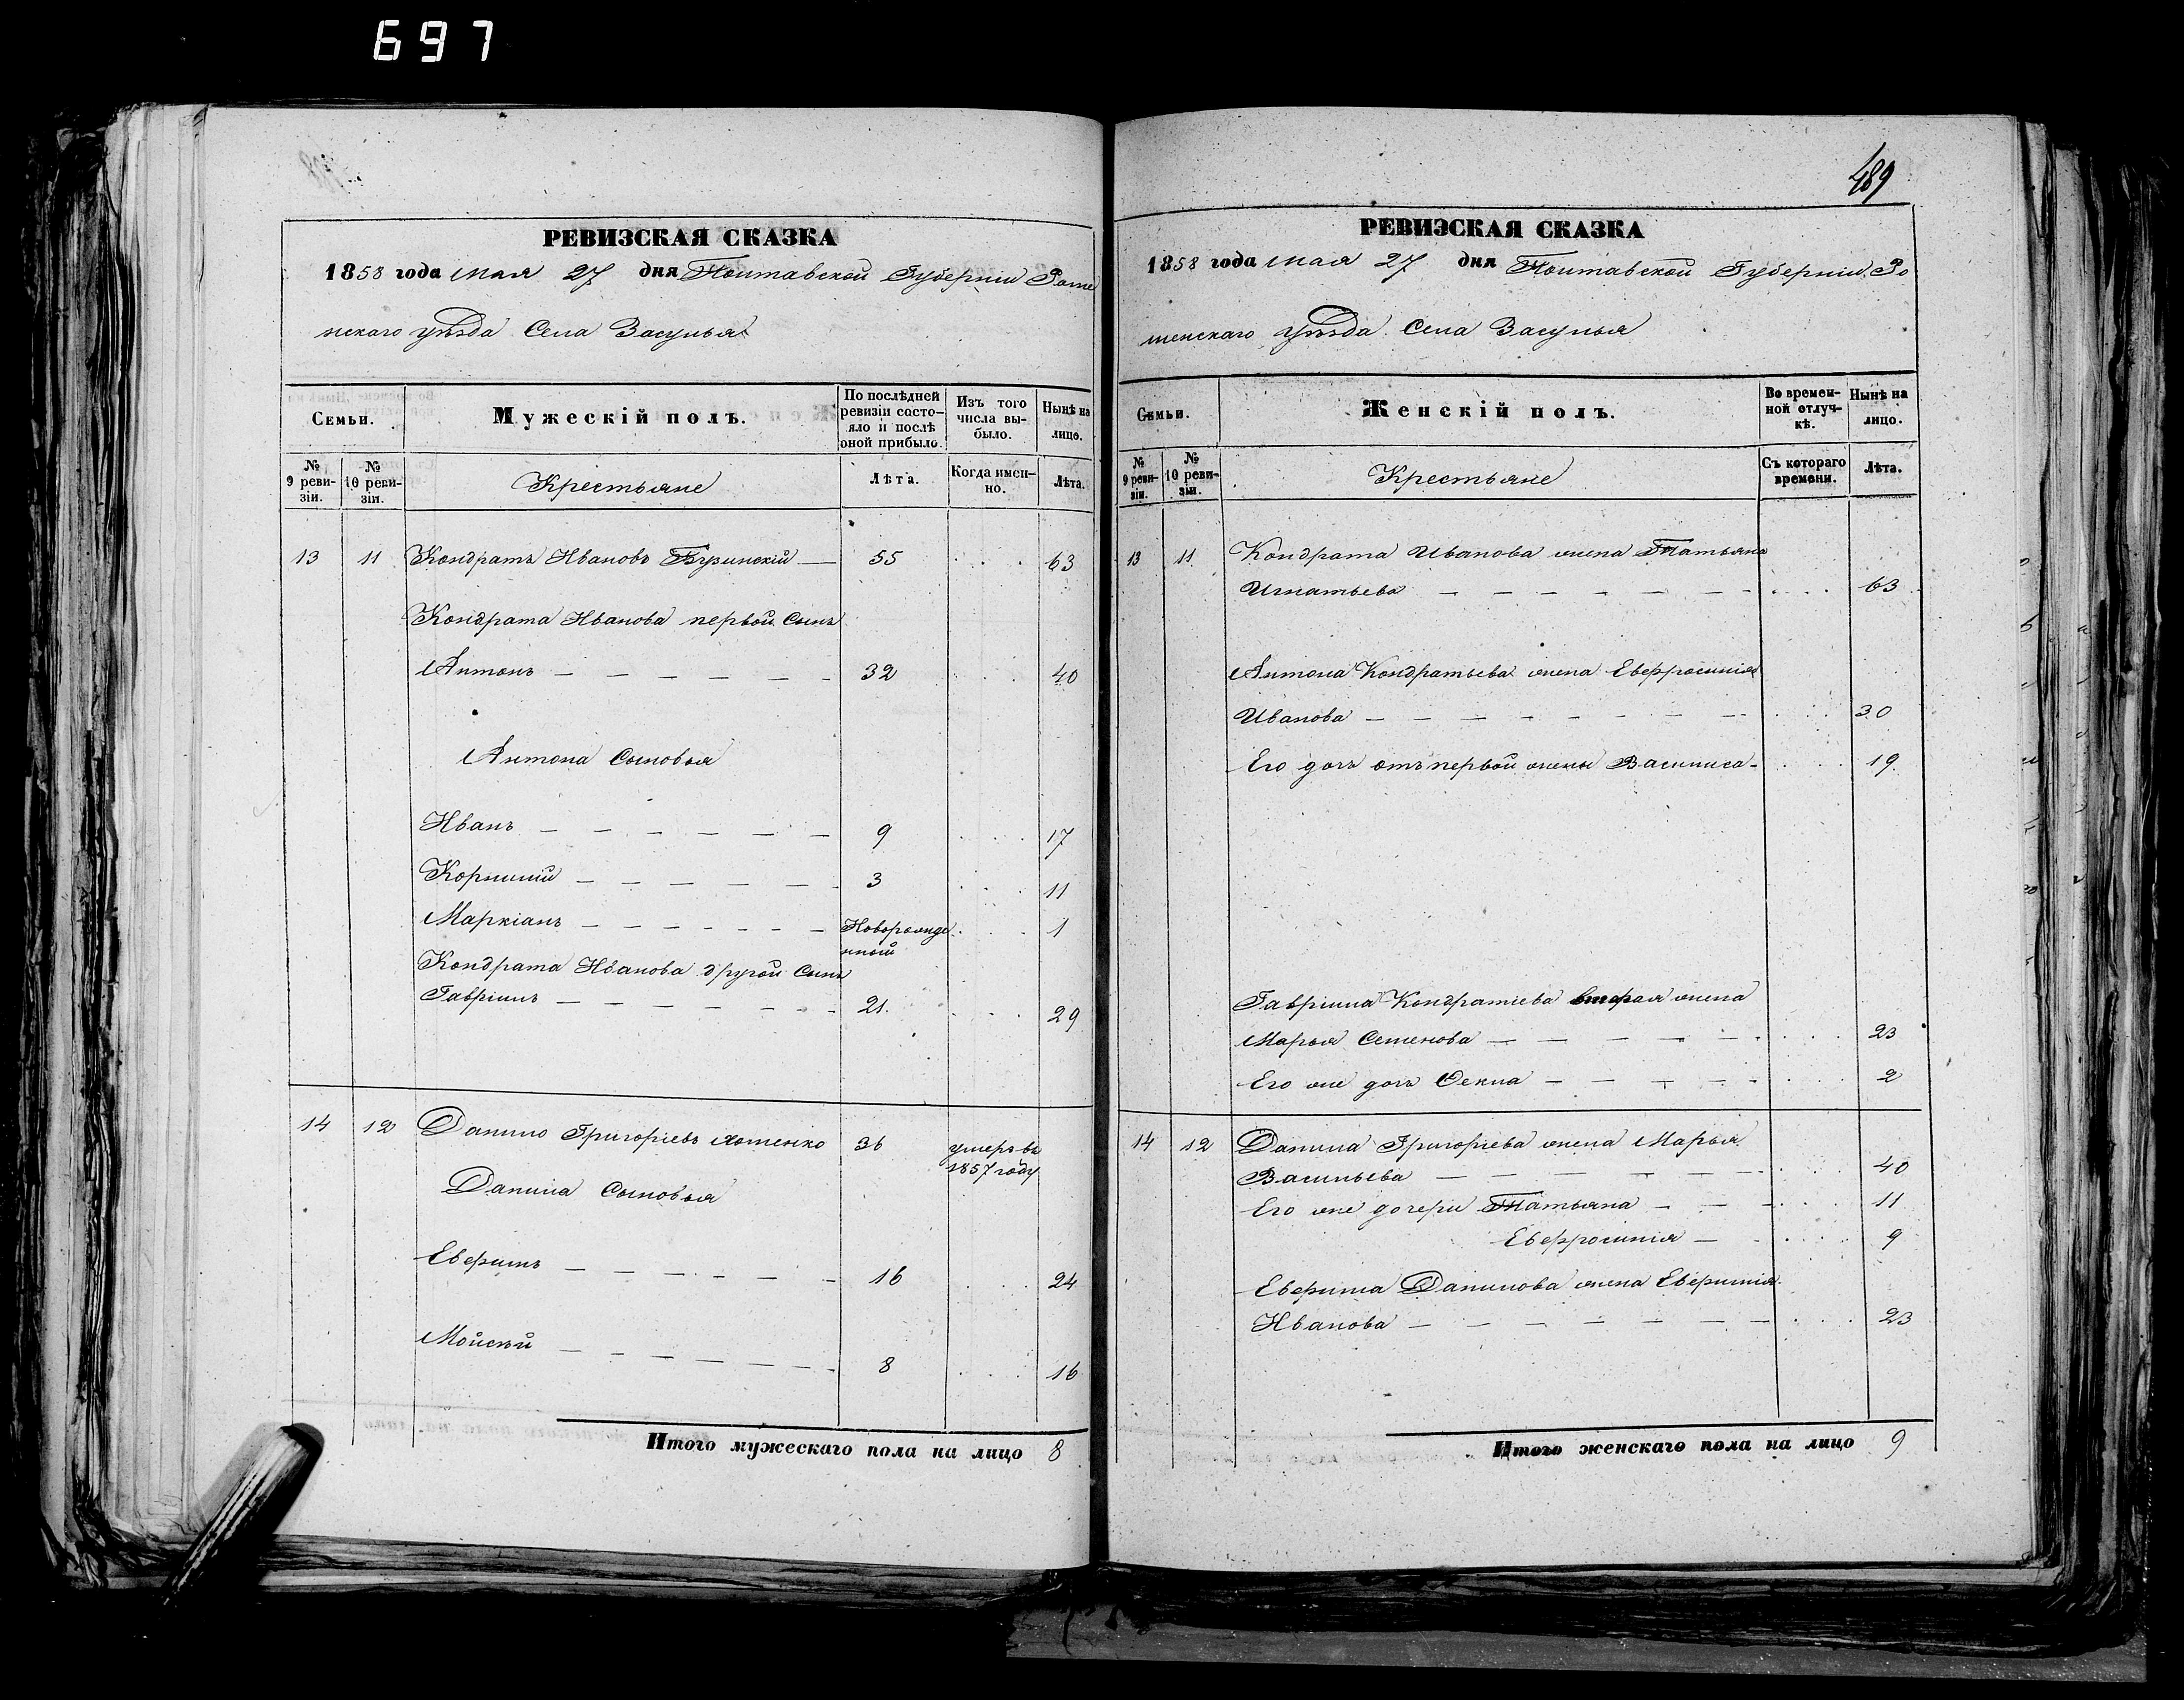 697
РЕВИЗСКАЯ СКАЗКА
1858 года мая 27 дня Полтавской Губерніи Роме
нскаго уѣзда Села Засулья
Семьи.
Мужескій полъ.
По послѣдней ревизіи состояло и послѣ оной прибыло.
Изъ того числа выбыло.
Нынѣ на лицо.
№ 9 ревизіи.
№ 10 ревизіи.
Крестьяне
Лѣта.
Когда именно.
Лѣта.
13 11 Кондратъ Ивановъ Буринскій — 55 . . . 63
Кондрата Иванова первой Сынъ
Антонъ — — — — — — 32 . . . 40
Антона Сыновья
Иванъ — — — — — — 9 . . . 17
Корнилій — — — — — 3 . . . 11
Маркіанъ — — — — — — Новорожде . . . 1
нный
Кондрата Иванова другой Сынъ
Гавріилъ — — — — — — 21. . . . 29
14 12 Данило Григоріевъ 36 умеръ въ
1857 году
Данила Сыновья
Евфимъ — — — — — — 16 . . . 24
Мойсѣй — — — — — — 8 . . . 16
Итого мужескаго пола на лицо 8
489
РЕВИЗСКАЯ СКАЗКА
1858 года мая 27 дня Полтавской Губерніи Ро
менскаго уѣзда Села Засулья
Семьи.
Женскій полъ.
Во временной отлучкѣ.
Нынѣ на лицо.
№ 9 ревизіи.
№ 10 ревизіи.
Крестьяне
Съ котораго времени.
Лѣта.
13 11 Кондрата Иванова жена Татьяна
Игнатьева — — — — — — . . . 63
Антона Кондратьева жена Евфросинія
Иванова — — — — — — — . . . 30
Его дочь отъ первой жены Василиса - . . . 19
Гавріила Кондратіева вторая жена
Марья Семенова — — — — — . . . 23
Его же дочь Фекла — — — — — 2
14 12 Данила Григоріева жена Марья
Васильева — — — — — . . . 40
Его же дочери Татьяна — — — . . . 11
Евфросинія — . . . 9
Евфима Данилова жена Евфимія
Иванова — — — — — — — . . . 23
Итого женскаго пола на лицо 9